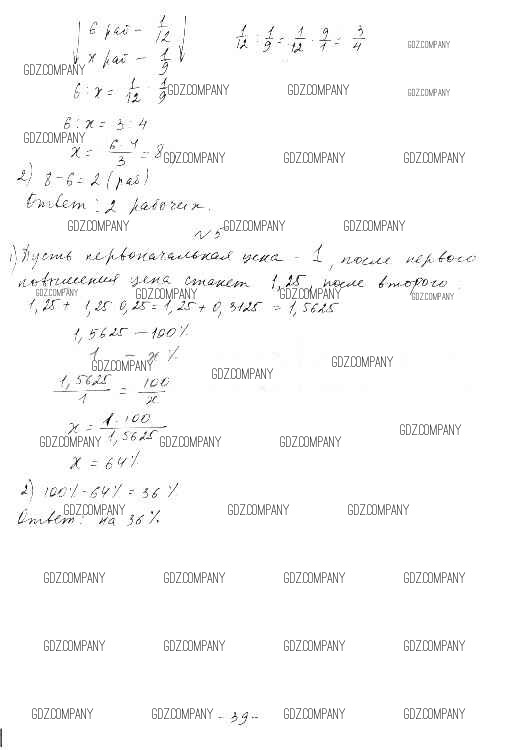 6 раб – 1/12    1/12 : 1/9 = 1/12 · 9/1 = 3/4
GDZ.COMPANY
x раб – 1/9
GDZ.COMPANY
6 : x = 1/12 : 1/9 GDZ.COMPANY GDZ.COMPANY GDZ.COMPANY
6 : x = 3 : 4
GDZ.COMPANY
x = 6·4/3 = 8 GDZ.COMPANY GDZ.COMPANY GDZ.COMPANY
2) 8 – 6 = 2 (раб)
Ответ: 2 рабочих.
GDZ.COMPANY №5 GDZ.COMPANY GDZ.COMPANY
1) Пусть первоначальная цена – 1, после первого
повышения цена станет 1,25, после второго:
GDZ.COMPANY GDZ.COMPANY GDZ.COMPANY GDZ.COMPANY
1,25 + 1,25 · 0,25 = 1,25 + 0,3125 = 1,5625
1,5625 – 100%
1 – x %
GDZ.COMPANY GDZ.COMPANY GDZ.COMPANY
1,5625/1 = 100/x
x = 1·100/1,5625
GDZ.COMPANY GDZ.COMPANY GDZ.COMPANY GDZ.COMPANY
x = 64%
2) 100% – 64% = 36 %
GDZ.COMPANY GDZ.COMPANY GDZ.COMPANY
Ответ: на 36 %.
GDZ.COMPANY GDZ.COMPANY GDZ.COMPANY GDZ.COMPANY
GDZ.COMPANY GDZ.COMPANY GDZ.COMPANY GDZ.COMPANY
GDZ.COMPANY GDZ.COMPANY - 39 - GDZ.COMPANY GDZ.COMPANY